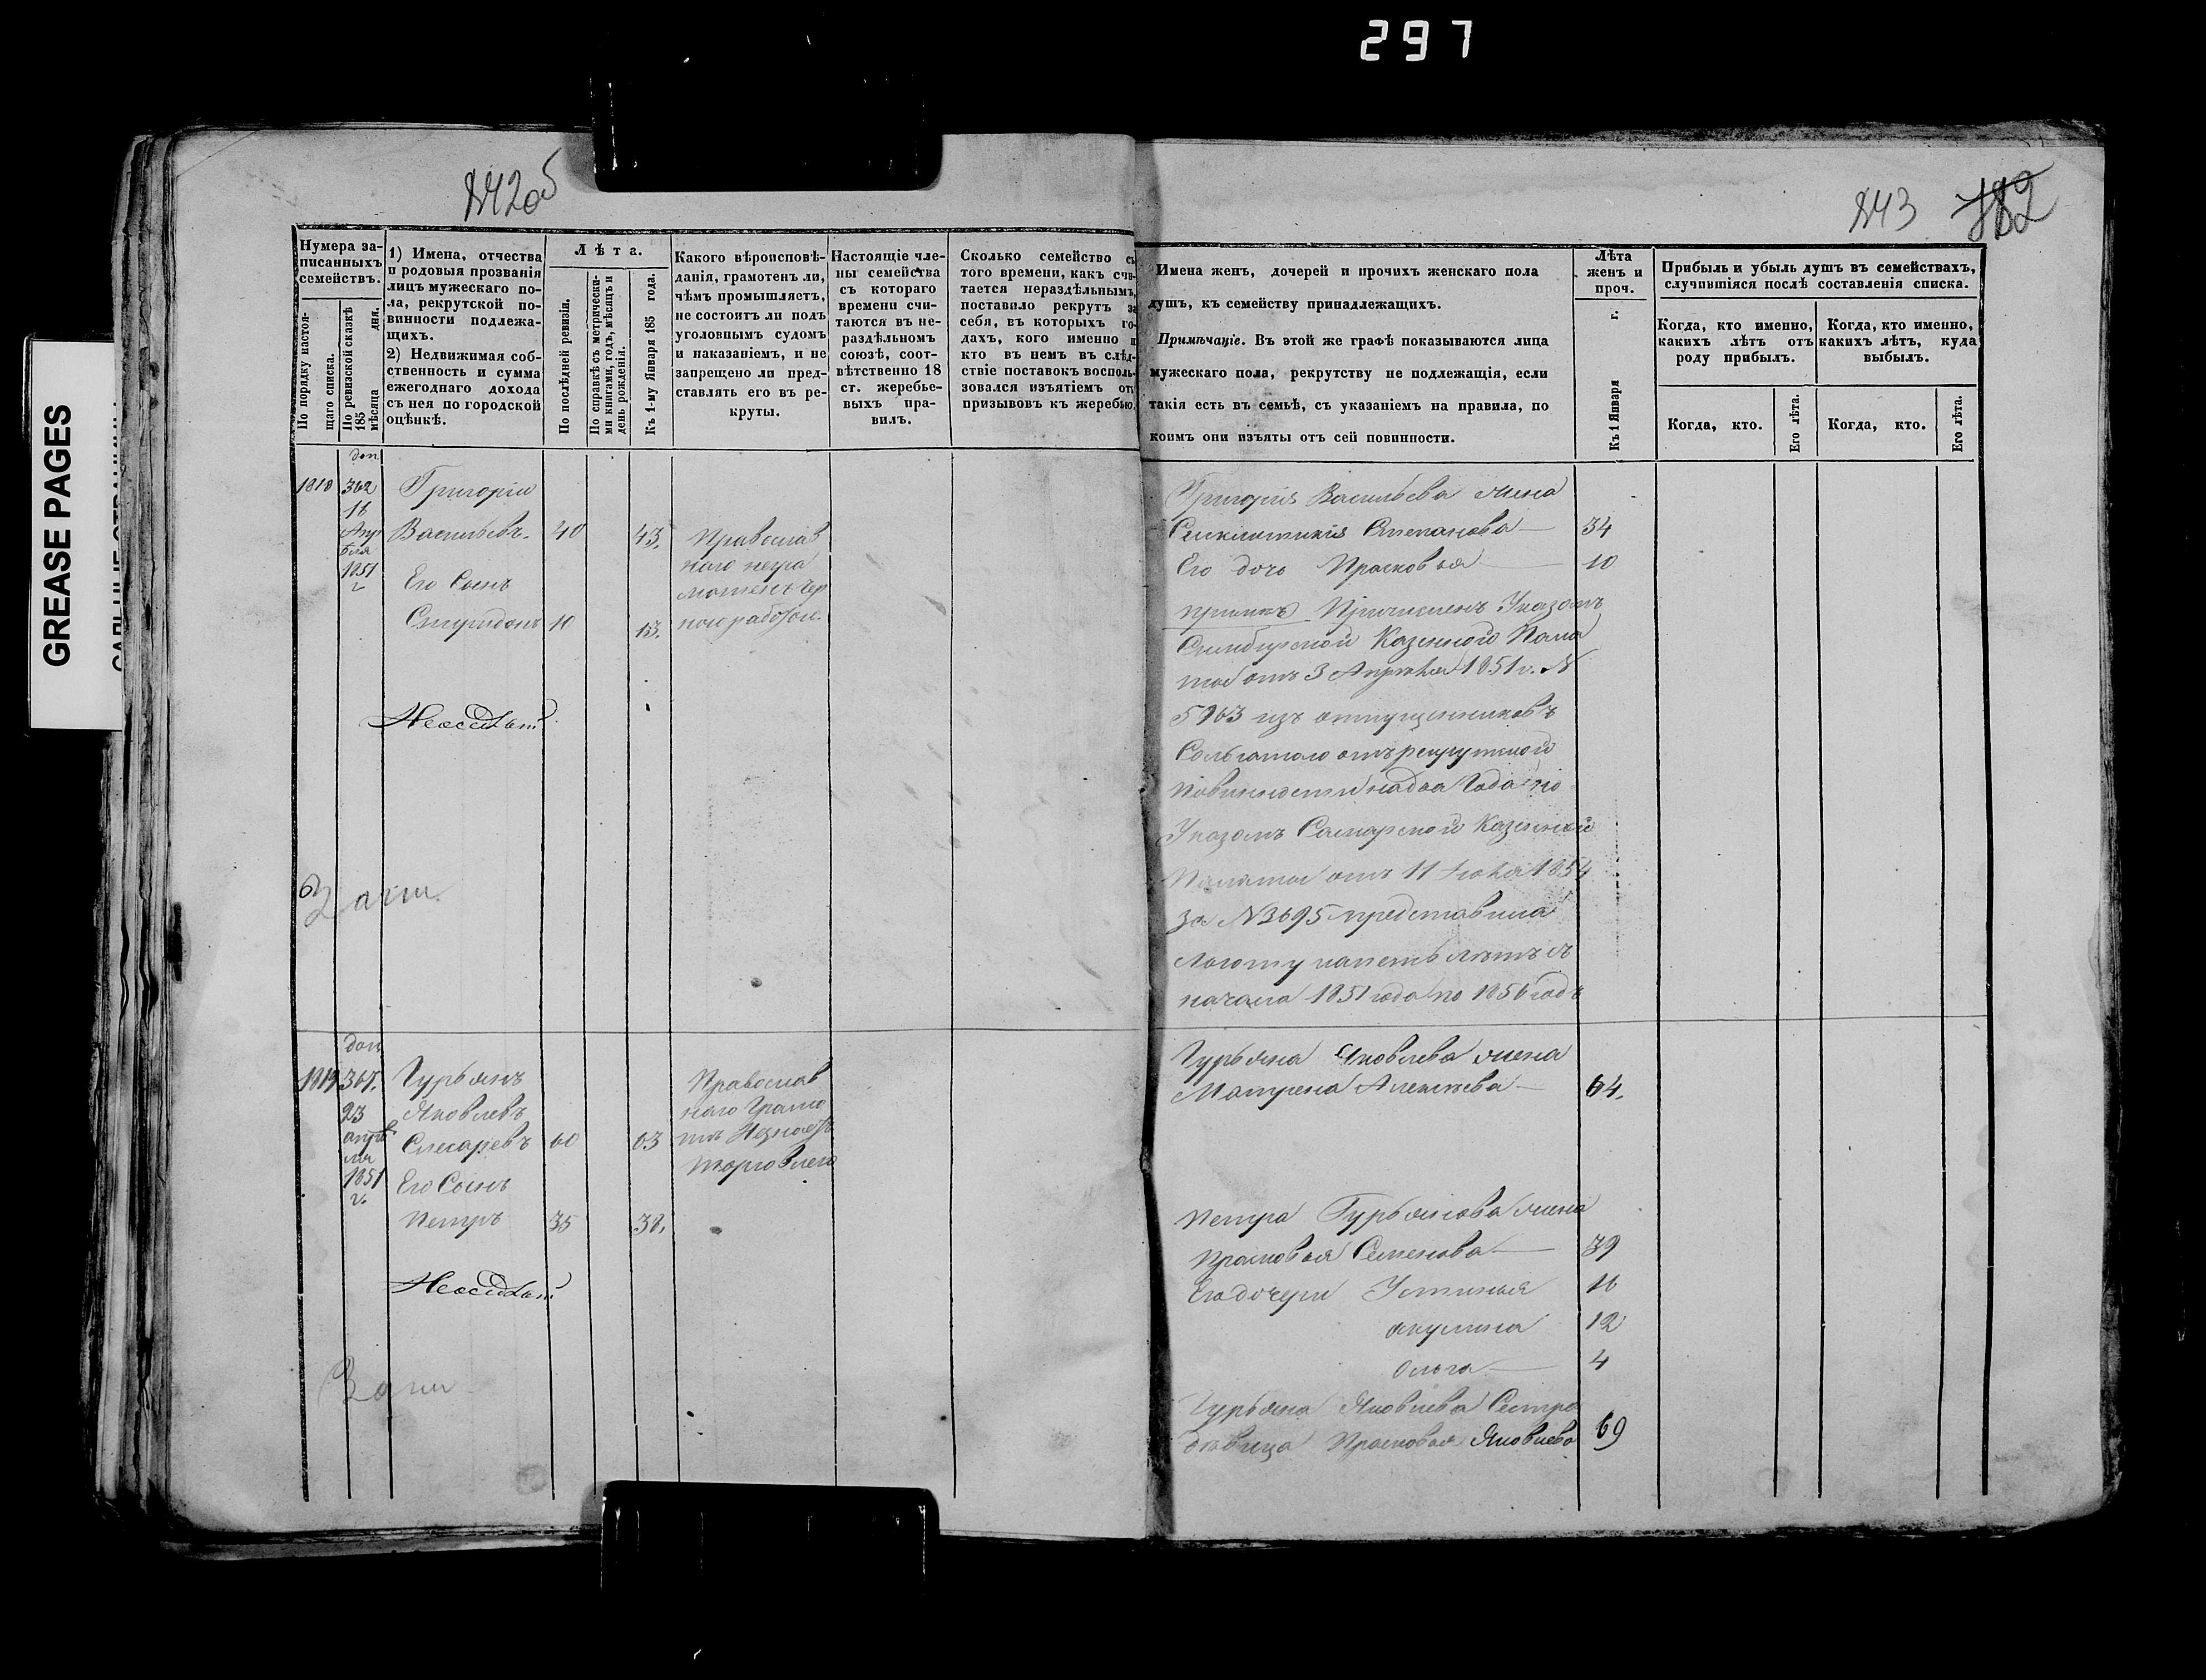 297
GREASE PAGES
842об
843
182
Нумера за-
писанныхъ
семействъ.
По порядку настоя-
щаго списка.
По ревизской сказкѣ
185 мѣсяца дня.
1) Имена, отчества
и родовыя прозванія
лицъ мужескаго по-
ла, рекрутской по-
винности подлежа-
щихъ.
2) Недвижимая соб-
ственность и сумма
ежегоднаго дохода
съ нея по городской
оцѣнкѣ.
Лѣта.
По послѣдней ревизіи.
По справкѣ съ метрически-
ми книгами, годъ, мѣсяцъ и
день рожденія.
Къ 1-му Января 185 года.
Какого вѣроисповѣ-
данія, грамотенъ ли,
чѣмъ промышляетъ,
не состоитъ ли подъ
уголовнымъ судомъ
и наказаніемъ, и не
запрещено ли пред-
ставлять его въ ре-
круты.
Настоящіе чле-
ны семейства
съ котораго
времени счи-
таются въ не-
раздѣльномъ
союзѣ, соот-
вѣтственно 18
ст. жеребье-
выхъ пра-
вилъ.
Сколько семейство съ
того времени, какъ счи-
тается нераздѣльнымъ,
поставило рекрутъ за
себя, въ которыхъ го-
дахъ, кого именно и
кто въ немъ въ слѣд-
ствіе поставокъ восполь-
зовался изъятіемъ отъ
призывовъ къ жеребью.
Имена женъ, дочерей и прочихъ женскаго пола
душъ, къ семейству принадлежащихъ.
Примѣчаніе. Въ этой же графѣ показываются лица
мужескаго пола, рекрутству не подлежащія, если
такія есть въ семьѣ, съ указаніемъ на правила, по
коимъ они изъяты отъ сей повинности.
Лѣта
женъ и
проч.
Къ 1 Января г.
Прибыль и убыль душъ въ семействахъ,
случившіяся послѣ составленія списка.
Когда, кто именно,
какихъ лѣтъ отъ
роду прибылъ.
Когда, кто именно,
какихъ лѣтъ, куда
выбылъ.
Когда, кто.
Его лѣта.
Когда, кто.
Его лѣта.
доп
1818 362 Григорій
16
Апр
Васильевъ. 40 43.
1851
г
Его Сынъ
Спиридонъ 10 13.
Православ
наго негра
мотенъ чер
ною работою.
Григорія Васильева жена
Степанова — 34
Его дочь Прасковья — 10
примѣч Причисленъ Указомъ
Симбирской Казенной Пала
ты отъ 3 Апрѣля 1851 г. №
5963 изъ отпущенниковъ
Сольготою отъ рекрутской
повинности на два года по
Указомъ Самарской Казенной
Палаты отъ 11 Іюня 1854
за №3695 представлена
льготу на пять лѣтъ съ
начала 1851 года по 1856 годъ
доп
1819 367. Гурьянъ
23 Яковлевъ
апрѣ
ля
Слесаревъ 60 63
1851
г.
Его Сынъ
Петръ 35 38.
Православ
наго Грамо
торговлею
Гурьяна Яковлева жена
Матрена Алексѣева — 64.
Петра Гурьянова жена
Прасковья Семенова — 39
Его дочери Устинья 16
Акулина 12
Ольга — 4
Гурьяна Яковлева Сестра
дѣвица Прасковья Яковлева 69